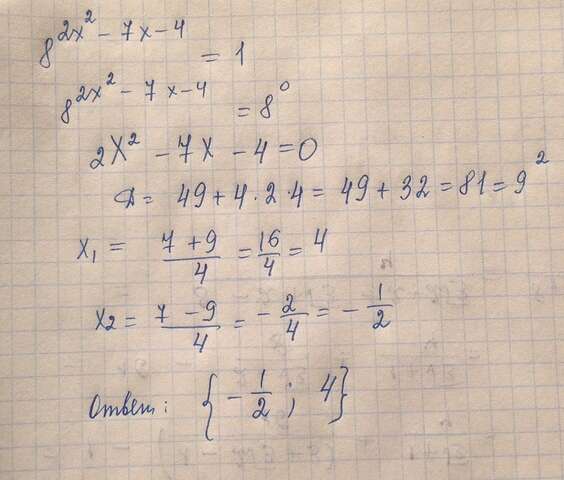 8^{2x² - 7x - 4} = 1
8^{2x² - 7x - 4} = 8⁰
2x² - 7x - 4 = 0
D = 49 + 4 · 2 · 4 = 49 + 32 = 81 = 9²
x₁ = (7 + 9)/4 = 16/4 = 4
x₂ = (7 - 9)/4 = - 2/4 = - 1/2
Ответ: { - 1/2 ; 4 }